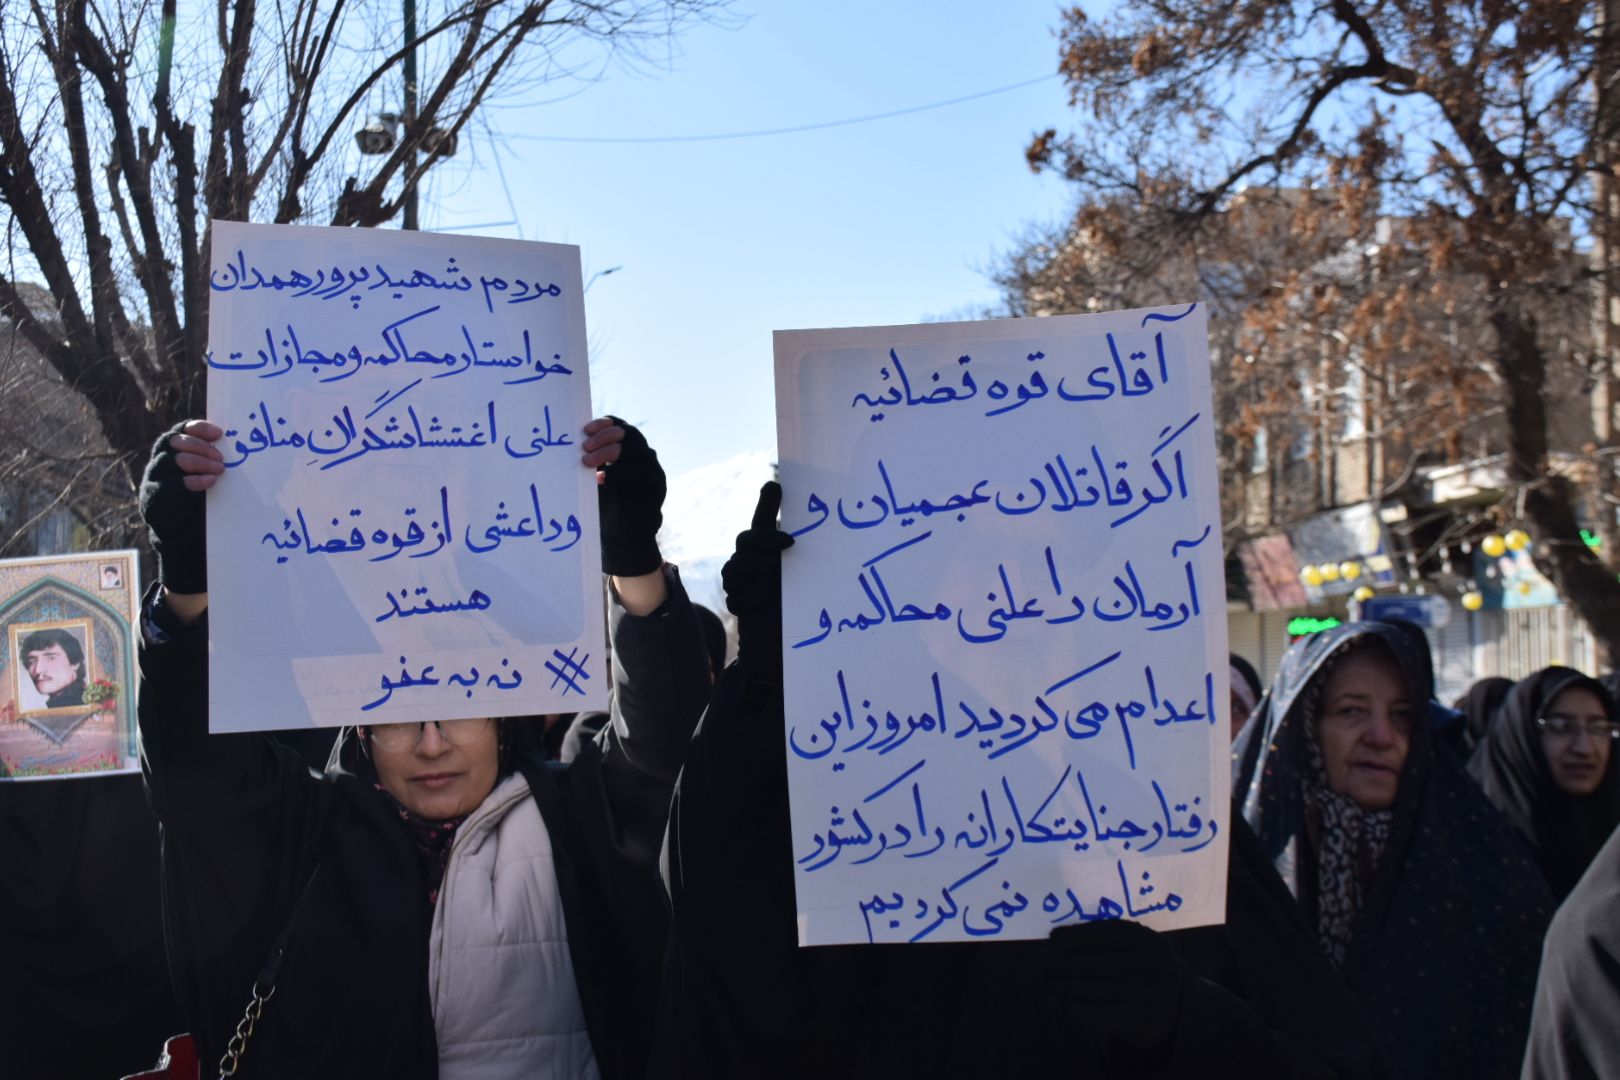 مردم شهیدپرور همدان
خواستار محاکمه و مجازات
علنی اغتشاشگرانِ منافق
و داعشی از قوه قضائیه
هستند
# نه به عفو
آقای قوه قضائیه
اگر قاتلان عجمیان و
آرمان را علنی محاکمه و
اعدام می کردید امروز این
رفتار جنایتکارانه را در کشور
مشاهده نمی کردیم